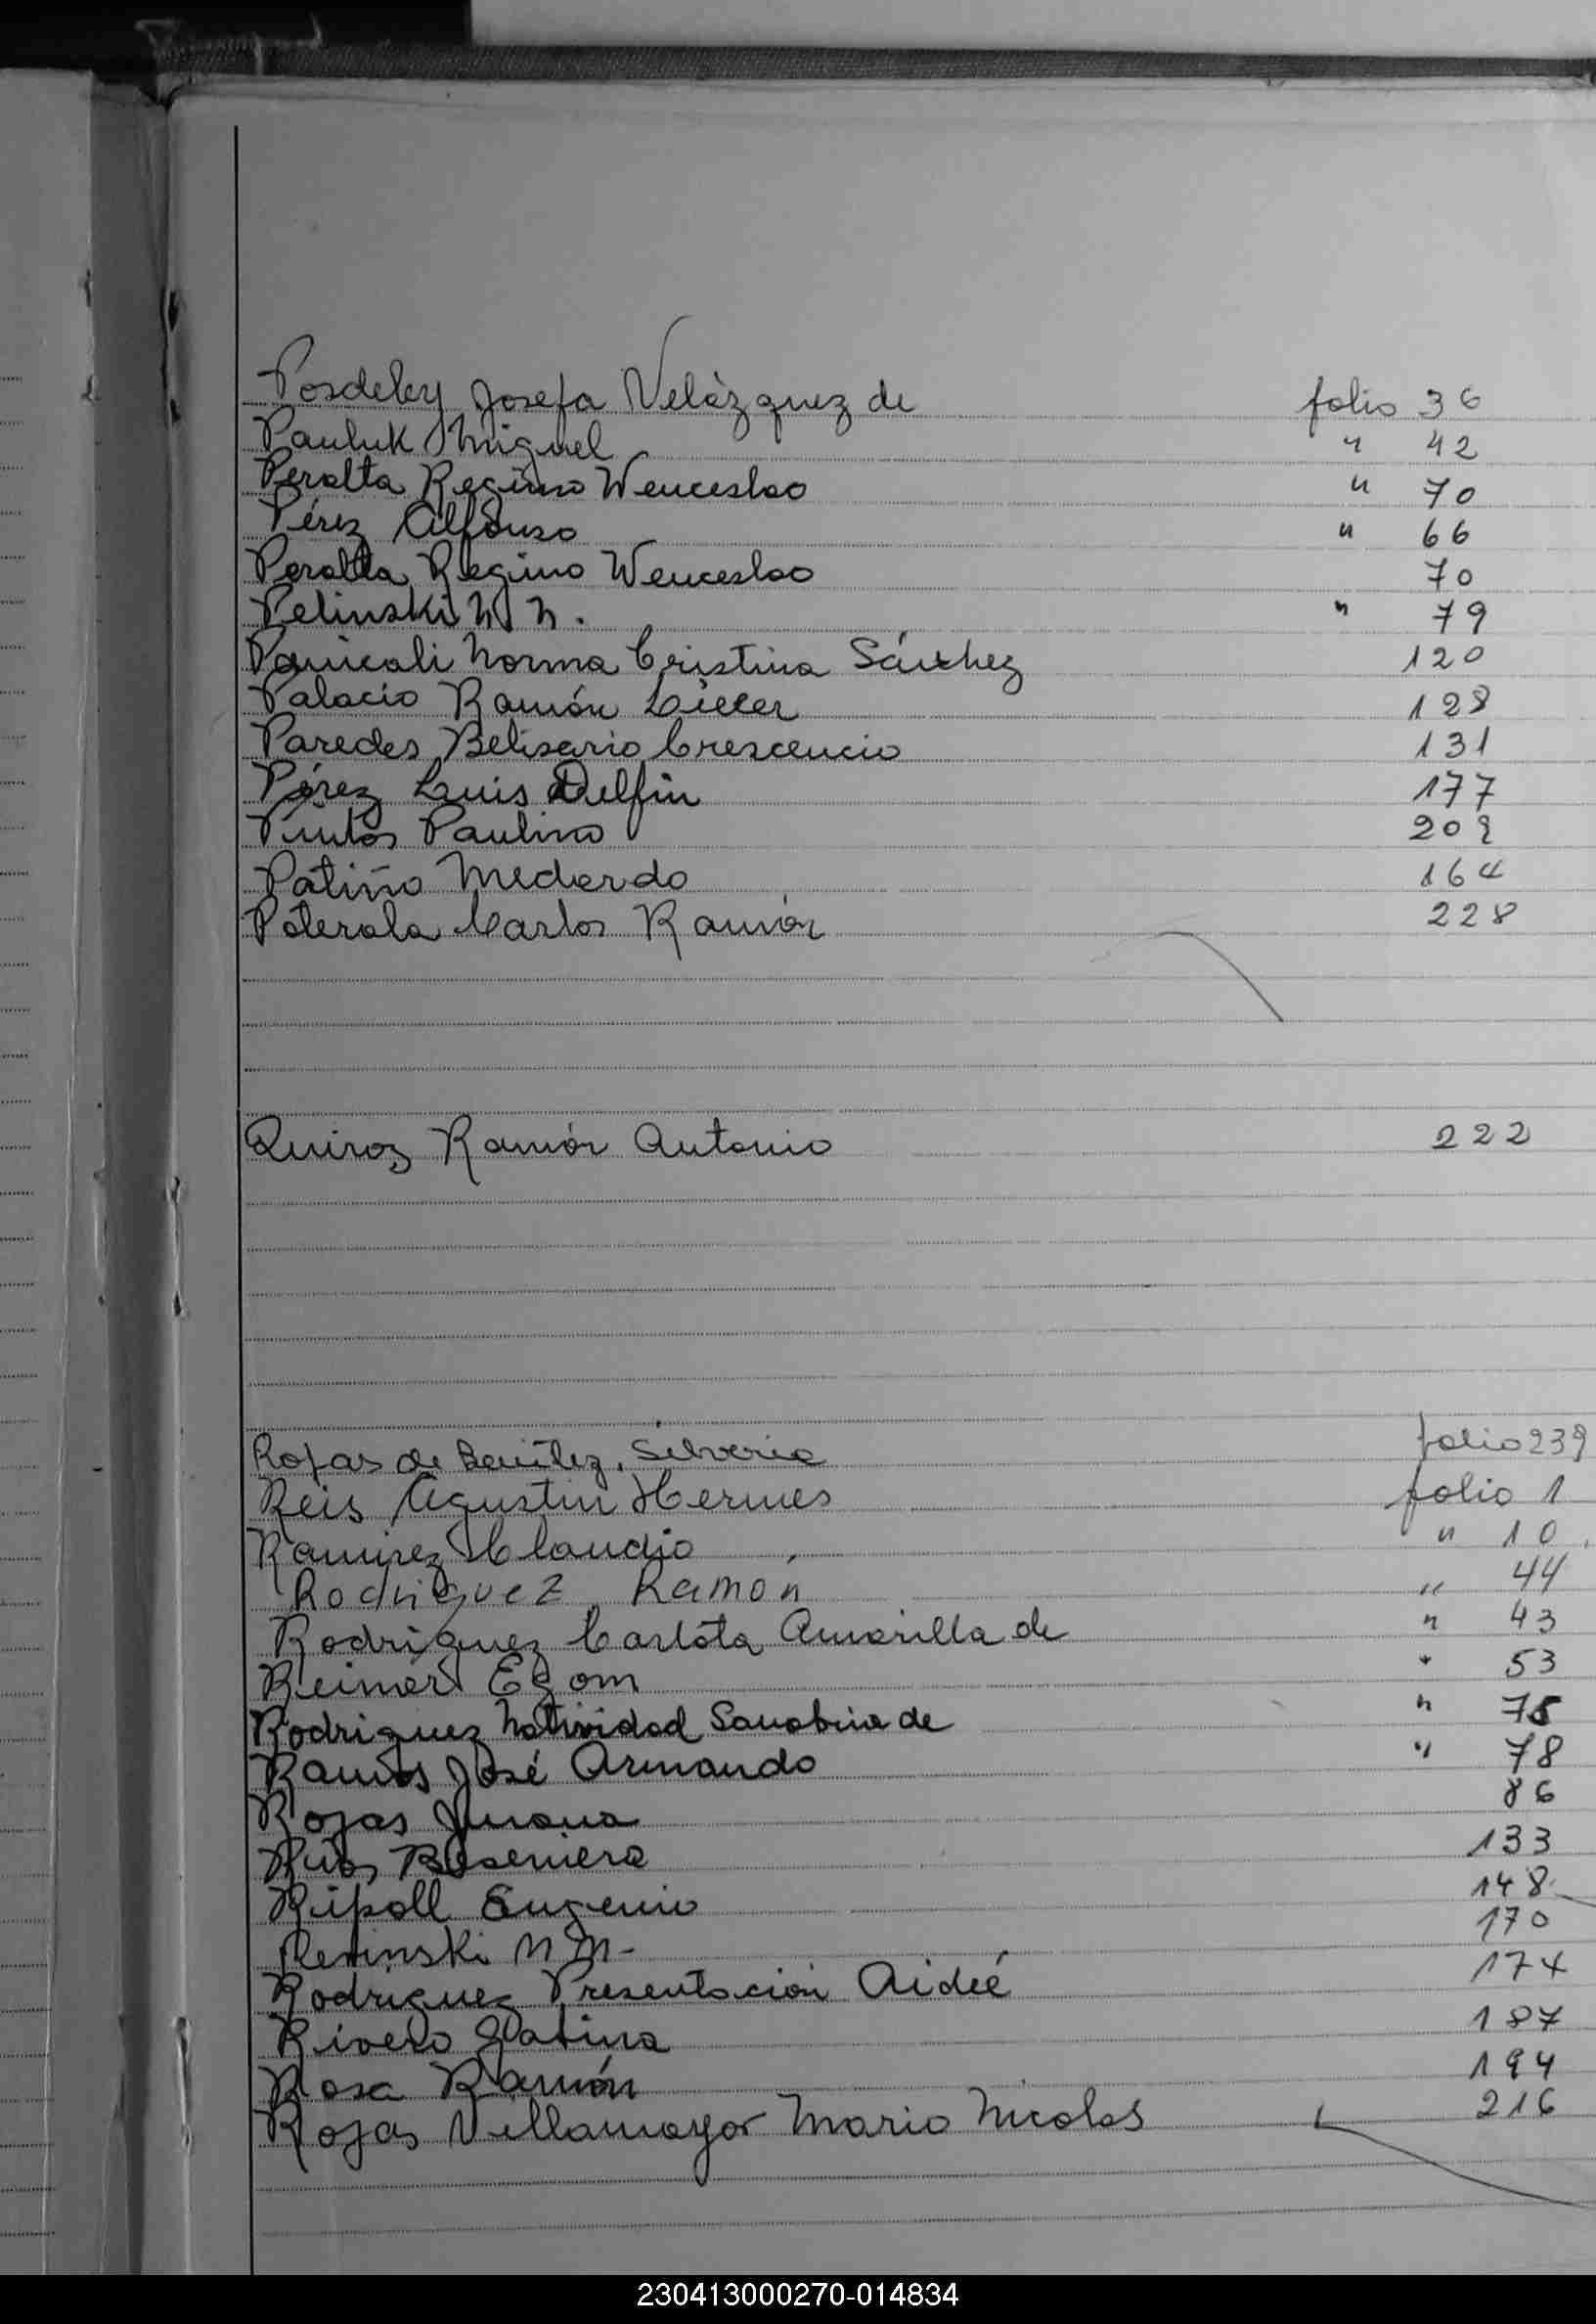 Posdeley Josefa Velázquez de folio 36
Pauluk Miguel " 42
Peralta Regino Wenceslao " 70
Pérez Alfonso " 66
Peralta Regino Wenceslao 70
Pelinski N N. " 79
Panicali Norma Cristina Sánchez 120
Palacio Ramón 128
Paredes Belisario Crescencio 131
Pérez Luis Delfin 177
Pintos Paulino 209
Patiño Medardo 164
Paterala Carlos Ramón 228
Quiroz Ramón Antonio 222
Rojas de Benítez, Silveria folio 239
Reis Agustin Hermes folio 1
Ramirez Claudio " 10
Rodriguez Ramón " 44
Rodriguez Carlota Amarilla de " 43
Reimer Egom " 53
Rodriguez Natividad Sanabria de " 75
Ramos José Armando " 78
Rojas Juana 86
Ríos 133
Ripoll Eugenio 148
Reninski N N- 170
Rodriguez Presentación Aideé 174
Rivero Sabina 187
Rosa Ramón 194
Rojas Villamayor Mario Nicolas 216
230413000270-014834